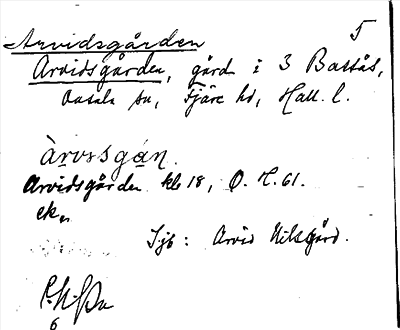 5
Arvidsgården
Arvidsgården, gård i 3 Battås,
Onsala sn, Fjäre hd, Hall. l.
Àrvısgán.
Arvidsgården kb 18, Ö. H. 61.
ek„
Tjb: Arvid Nilsgård.
6